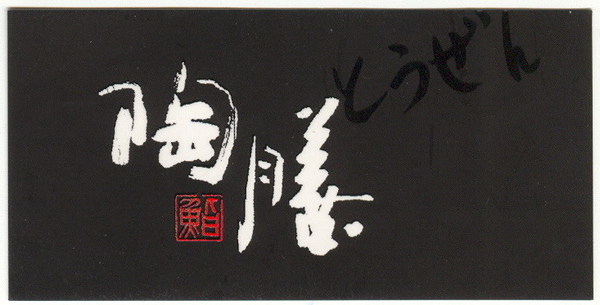 とうぜん
陶膳
鮨